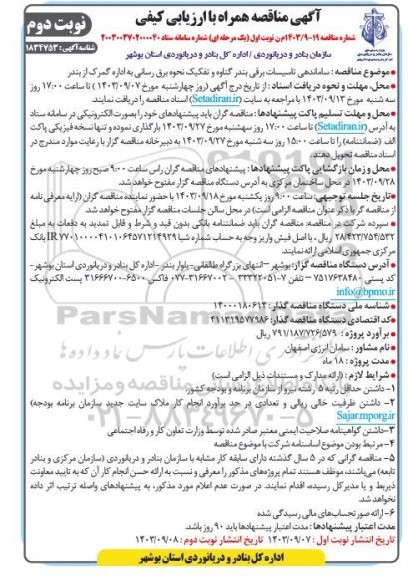 آگهی مناقصه همراه با ارزیابی کیفی
نوبت دوم
شماره مناقصه ۱۴۰۳/۹۰۱۹م ن نوبت اول (یک مرحله ای) شماره سامانه ستاد ۲۰۰۳۰۰۳۷۰۲۰۰۰۰۴۰
شناسه آگهی: ۱۸۳۴۷۵۳
سازمان بنادر و دریانوردی / اداره کل بنادر و دریانوردی استان بوشهر
• موضوع مناقصه: ساماندهی تاسیسات برقی بندر گناوه و تفکیک نحوه برق رسانی به اداره گمرک از بندر
• محل، مهلت و نحوه دریافت اسناد: از تاریخ درج آگهی (روز چهارشنبه مورخ ۱۴۰۳/۰۹/۰۷) تا ساعت ۱۷:۰۰ روز
سه شنبه مورخ ۱۴۰۳/۰۹/۱۳ با مراجعه به سایت (Setadiran.ir) اسناد مناقصه را دریافت نمایند.
• محل و مهلت تسلیم پاکت پیشنهادها: مناقصه گران باید پیشنهادهای خود را بصورت الکترونیکی در سامانه ستاد
به آدرس (Setadiran.ir) تا ساعت ۱۷:۰۰ روز سه‌شنبه مورخ ۱۴۰۳/۰۹/۲۷ بارگذاری نموده و تنها نسخه فیزیکی پاکت
الف (ضمانتنامه) را تا ساعت ۱۵:۰۰ روز سه شنبه مورخ ۱۴۰۳/۰۹/۲۷ به دبیرخانه مناقصه گزار با رعایت موارد مندرج در
اسناد مناقصه تحویل دهند.
• محل و زمان بازگشایی پاکت پیشنهادها: پیشنهادهای مناقصه گران راس ساعت ۹:۰۰ صبح روز چهارشنبه مورخ
۱۴۰۳/۰۹/۲۸ در محل ساختمان مرکزی به آدرس دستگاه مناقصه گزار مفتوح خواهد شد.
• تاریخ جلسه توجیهی: ساعت ۹:۰۰ روز یکشنبه مورخ ۱۴۰۳/۰۹/۱۸ با حضور نماینده مناقصه گران (ارایه معرفی نامه
از مناقصه گر با ذکر عنوان مناقصه الزامی است) در محل سالن جلسات مناقصه گزار مفتوح خواهد شد.
• سپرده شرکت در مناقصه: مناقصه گران باید ضمانتنامه بانکی بدون قید و شرط و قابل تمدید به دفعات به مبلغ
۲۸/۴۲۳/۷۵۴/۵۳۲ ریال، یا اصل فیش واریز وجه به حساب شماره شبا IR ۷۷۰۱۰۰۰۰۴۱۰۱۰۶۴۵۷۱۲۱۴۹۲۹ بانک
مرکزی جمهوری اسلامی ارائه نمایند.
• آدرس دستگاه مناقصه گزار: بوشهر – انتهای بزرگراه طالقانی- بلوار بندر - اداره کل بنادر و دریانوردی استان بوشهر-
کد پستی ۷۵۱۷۶۳۸۴۸۰ – تلفن ۷-۳۳۳۲۲۰۵۱ - ۳۱۶۶۷۰۰۲-۰۷۷ فاکس ۶۵۰۰-۳۱۶۶۷۰۰۰ پست الکترونیک
info@bpmo.ir
• شناسه ملی دستگاه مناقصه گذار: ۱۴۰۰۰۱۸۰۶۱۳
• کد اقتصادی دستگاه مناقصه گذار: ۴۱۱۳۱۹۵۷۷۹۸۶
• برآورد پروژه: ۷۹۱/۱۸۷/۷۲۶/۵۷۹ ریال
• نام مشاور: سامان انرژی اصفهان
• مدت پروژه: ۱۸ ماه
• شرایط لازم: (ارائه مدارک و مستندات ذیل الزامی است)
۱- داشتن حداقل رتبه ۵ رشته نیرو از سازمان برنامه و بودجه کشور.
۲- داشتن ظرفیت خالی ریالی و تعدادی در حد برآورد انجام کار ملاک سایت جدید سازمان برنامه بودجه)
Sajar.mporg.ir
۳-داشتن گواهینامه صلاحیت ایمنی معتبر صادر شده توسط وزارت تعاون کار و رفاه اجتماعی
۴- مرتبط بودن موضوع اساسنامه شرکت با موضوع مناقصه
۵- مناقصه گرانی که در ۵ سال گذشته دارای سابقه کار مشابه با سازمان بنادر و دریانوردی (سازمان مرکزی و بنادر
تابعه) می‌باشند، موظف هستند تمام پروژه‌های مذکور را معرفی و نسبت به ارائه حسن انجام کار آن که به تایید معاونت
ذیربط و یا مدیرکل رسیده، اقدام نمایند. در صورت عدم اعلام مورد مذکور، به پیشنهادهای واصله ترتیب اثر داده
نخواهد شد.
۶- ارائه صورتحساب‌های مالی رسیدگی شده
مدت اعتبار پیشنهادها: مدت اعتبار پیشنهادها باید ۹۰ روز باشد.
تاریخ انتشار نوبت اول: ۱۴۰۳/۰۹/۰۷ تاریخ انتشار نوبت دوم: ۱۴۰۳/۰۹/۰۸
اداره کل بنادر و دریانوردی استان بوشهر